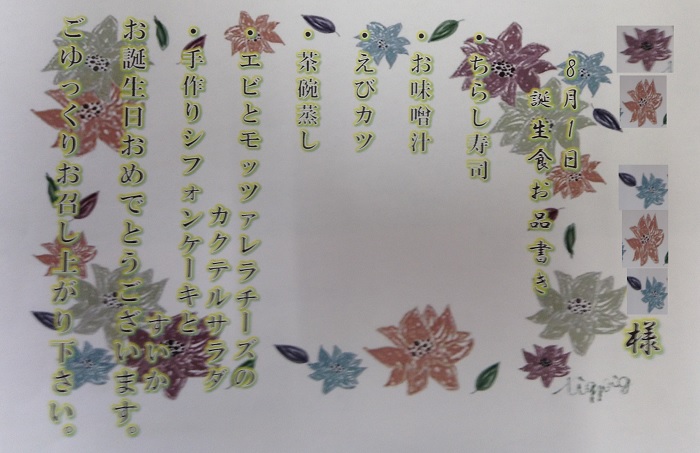 様
8月1日
誕生食お品書き
・ちらし寿司
・お味噌汁
・えびカツ
・茶碗蒸し
・エビとモッツァレラチーズの
カクテルサラダ
・手作りシフォンケーキと
すいか
お誕生日おめでとうございます。
ごゆっくりお召し上がり下さい。